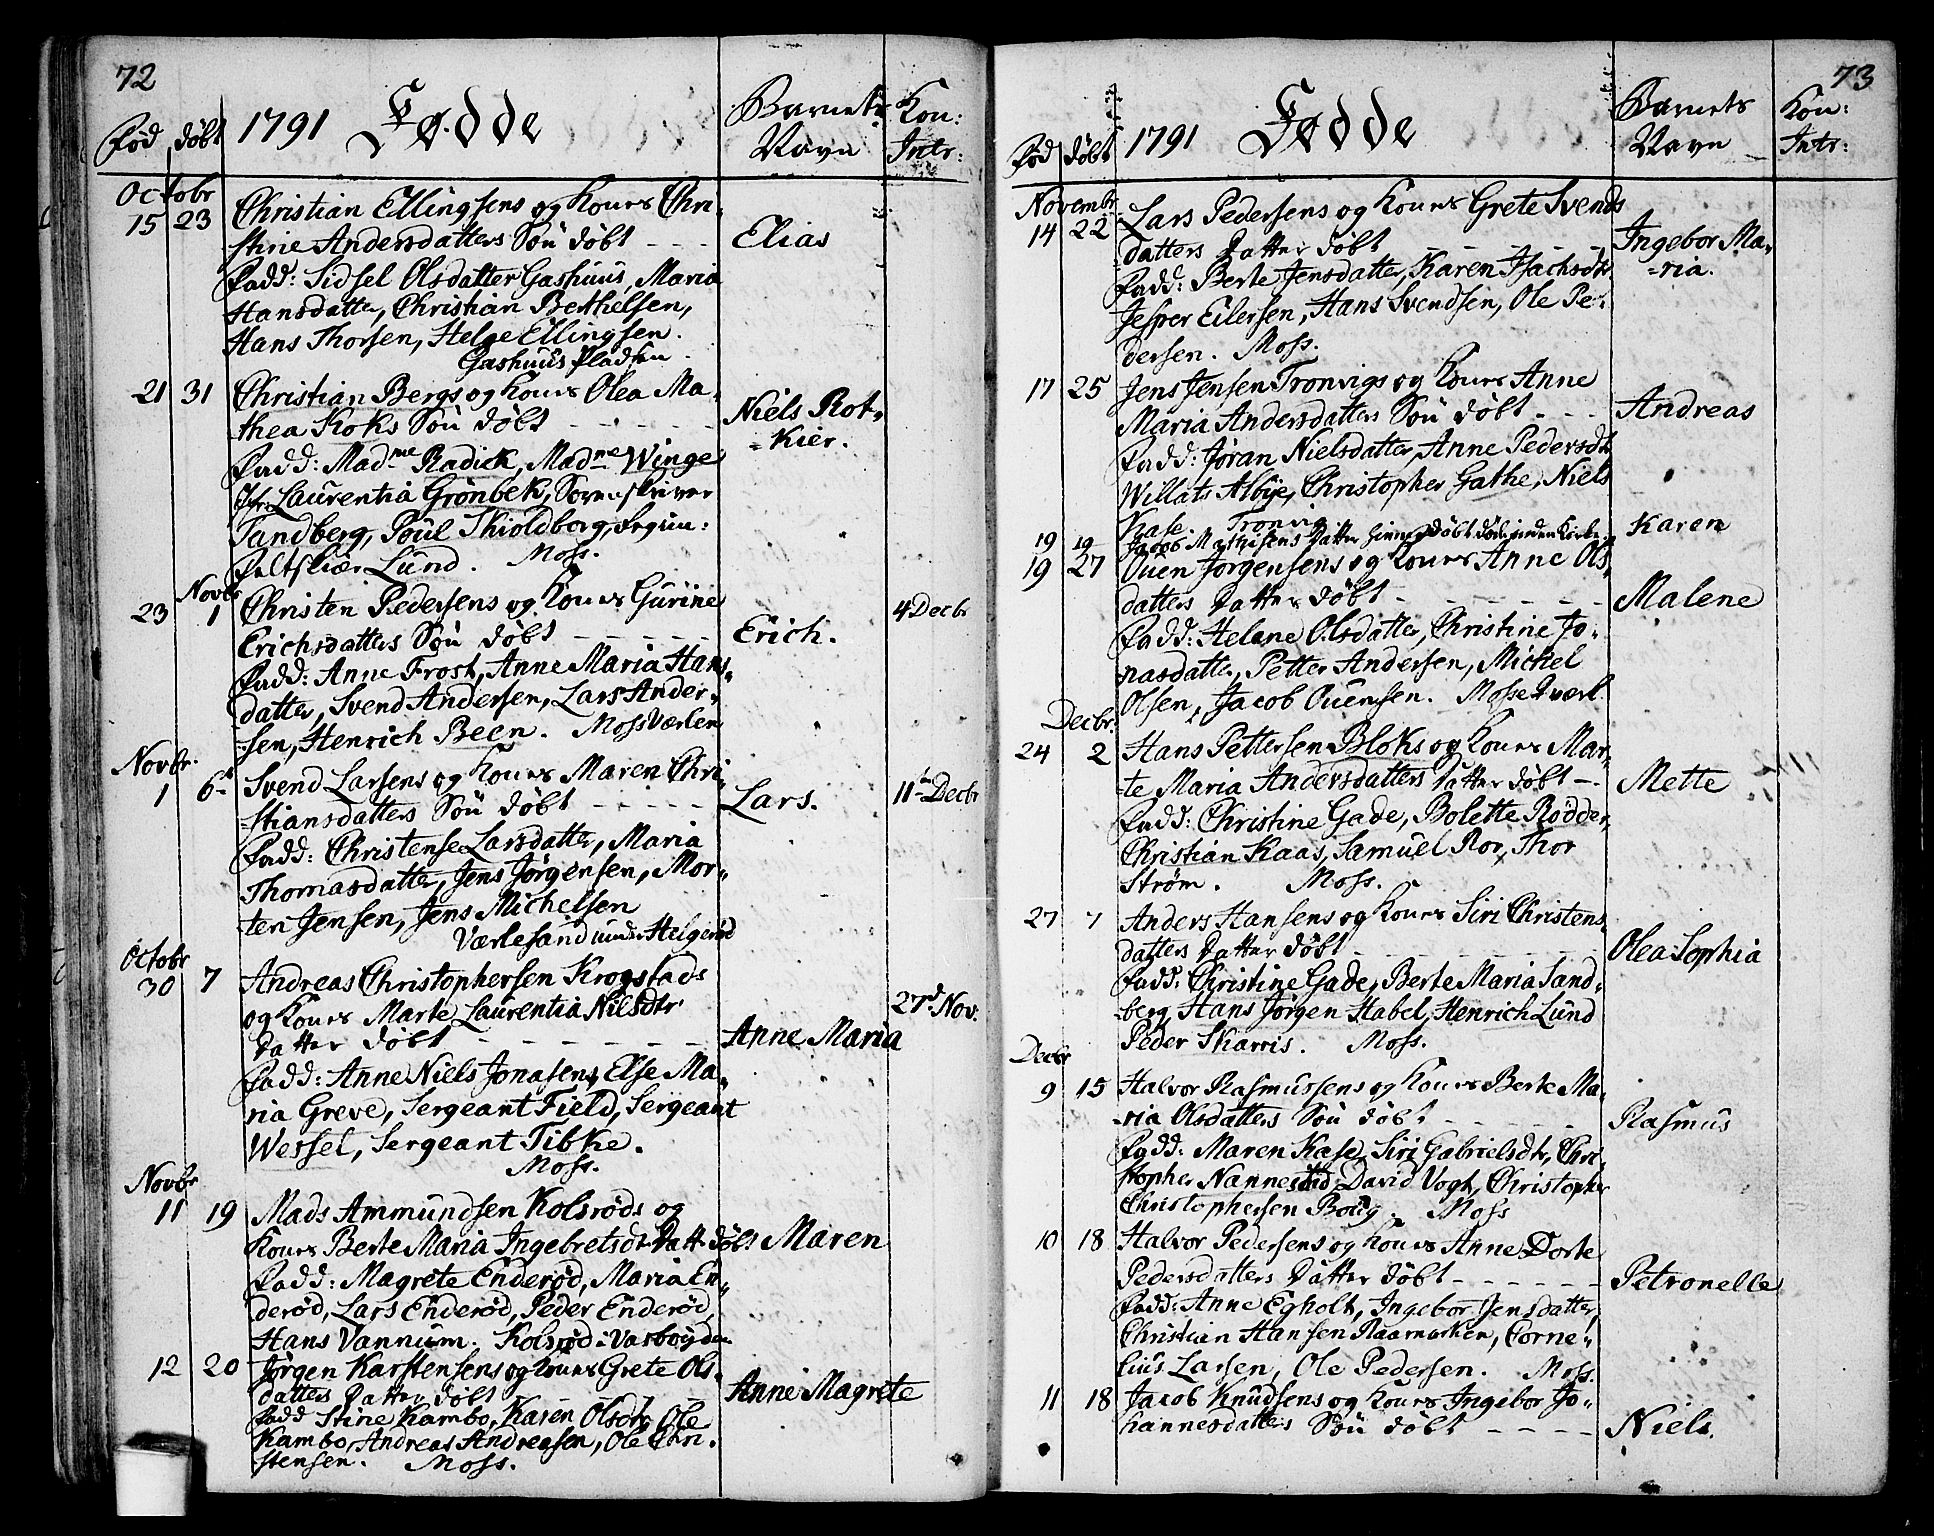 72
Fød døbt 1791 Fødde Barnets Navn Kon: Intr:
Octobr
15 23 Christian Ellingsens og Kones Chri-
stine Andersdatters Søn døbt - - - Elias
Fadd: Sidsel Olsdatter Gashuus, Maria
Hansdatter, Christian Berthelsen,
Hans Thorsen, Helge Ellingsen.
Gashuus Pladsen
21 31 Christian Bergs og Kones Olea Ma-
thea Koks Søn døbt - - - - - Niels Rot-
=kier.
Fadd: Madme Radick, Madme Winge
Jfr Laurentia Grönbek, Sorenskriver
Sandberg, Poul Skioldborg, Regim:
Feltskiær Lund. Moss.
Novbr
23 1 Christen Pedersens og Kones Gurine 4 Decbr
Erichsdatters Søn døbt - - - - - Erich.
Fadd: Anne Frost, Anne Maria Hans-
datter, Svend Andersen, Lars Ander-
sen, Henrich Been. Moss Værlen
Novbr.
1 6te Svend Larsens og Kones Maren Chri-
stiansdatters Søn døbt - - - - - Lars. 11te Decbr
Fadd: Christense Larsdatter, Maria
Thomasdatter, Jens Jörgensen, Mor-
ten Jensen, Jens Michelsen
Værlesand under Helgerød
Octobr
30 7 Andreas Christophersen Krogstads
og Kones Marte Laurentia Nilsdtr 27d Nov.
Datter døbt - - - - - - Anne Maria
Fadd: Anne Niels Jonasens, Else Ma-
ria Greve, Sergeant Field, Sergeant
Wessel, Sergeant Tibke.
Moss.
Novbr
11 19 Mads Ammundsen Kolsrøds og
Kones Berte Maria Ingebretsdtr Datt døbt Maren
Fadd: Magrete Enderød, Maria En-
derød, Lars Enderød, Peder Enderød,
Hans Vannum. Kolsrød i Varbøyden
12 20 Jörgen Karstensens og Kones Grete Ols-
datters Datter døbt - - - - - Anne Magrete
Fadd Stine Kambo, Karen Olsdtr, Ole
Kambo, Andreas Andreasen, Ole Chri-
stensen. Moss.
73
Fød døbt 1791 Fødde Barnets Navn Kon: Intr:
Novembr
14 22 Lars Pedersens og Kones Grete Svends
datters Datter døbt - - - - - Ingebor Ma-
=ria.
Fadd: Berte Jensdatter, Karen Isachsdtr
Jesper Eilersen, Hans Svendsen, Ole Pe-
dersen. Moss.
17 25 Jens Jensen Tronvigs og Kones Anne
Maria Andersdatters Søn døbt - - - Andreas
Fadd: Jøran Nielsdatter, Anne Pedersdtr
Willats Albye, Christopher Gathe, Niels
Kase. Tronvig
19 19 Jacob Mathisens Datter hiemedøbt døde inden Kirke- Karen
19 27 Ouen Jörgensens og Kones Anne Ols-
datters Datter døbt - - - - - Malene
Fadd: Helene Olsdatter, Christine Jo-
nasdatter, Petter Andersen, Michel
Olsen, Jacob Ouensen. Mosse Værl
Decbr.
24 2 Hans Pettersen Bloks og Kones Mar-
te Maria Andersdatters Datter døbt - - Mette
Fadd: Christine Gade, Bolette Rødder,
Christian Kaas, Samuel Ror, Thor
Strøm. Moss.
27 7 Anders Hansens og Kones Siri Christens-
datters Datter døbt - - - - - Olea Sophia
Fadd: Christine Gade, Berte Maria Sand-
berg, Hans Jörgen Stabel, Henrich Lund
Peder Skarris. Moss.
Decbr
9 15 Halvor Rasmussens og Kones Berte Ma-
ria Olsdatters Søn døbt - - - - - Rasmus
Fadd: Maren Kase, Siri Gabrielsdtr, Chri-
stopher Nannestad, David Vogt, Christopher
Christophersen Boug. Moss
10 18 Halvor Pedersens og Kones Anne Dorte
Pedersdatters Datter døbt - - - - - Petronelle
Fadd: Anne Egholt, Ingebor Jensdatter,
Christian Hansen Raamarken, Corne-
lius Larsen, Ole Pedersen. Moss.
11 18 Jacob Knudsens og Kones Ingebor Jo-
hannesdatters Søn døbt - - - - Niels.